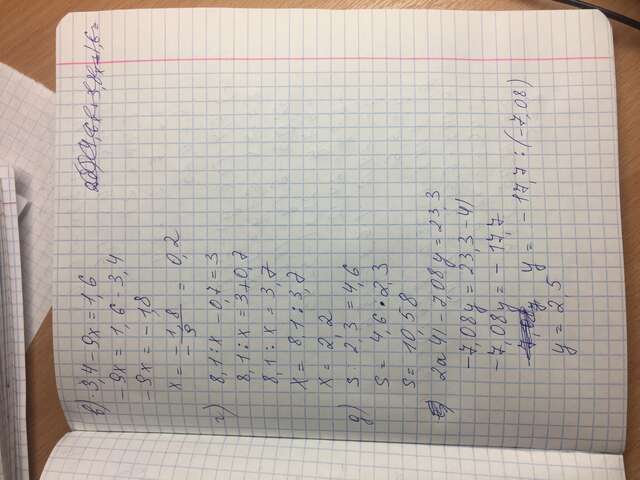 в) 3,4 - 9x = 1,6
-9x = 1,6 - 3,4
-9x = -1,8
x = -1,8/-9 = 0,2
г) 8,1 : x - 0,7 = 3
8,1 : x = 3 + 0,7
8,1 : x = 3,7
x = 8,1 : 3,7
x = 2,2
д) s : 2,3 = 4,6
s = 4,6 · 2,3
s = 10,58
41 - 7,08y = 23,3
-7,08y = 23,3 - 41
-7,08y = -17,7
y = -17,7 : (-7,08)
y = 2,5